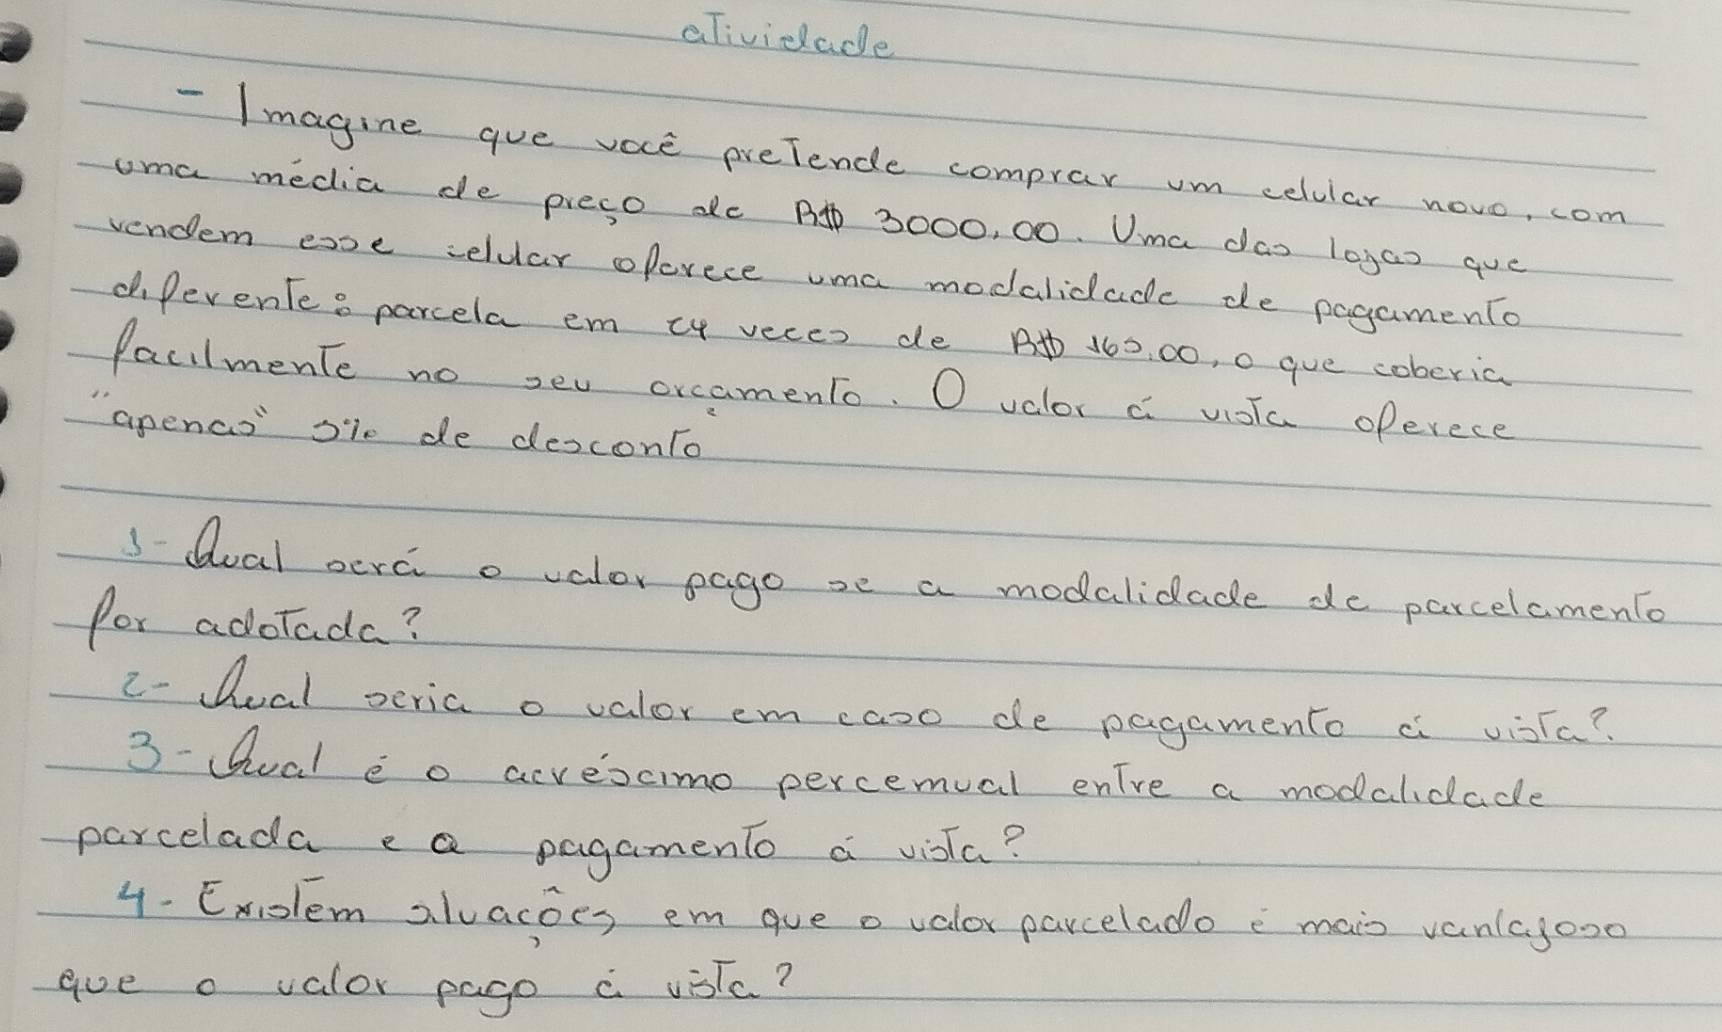 atividade
- Imagine que você pretende comprar um celular novo, com
uma média de preço de R$ 3000,00. Uma das lojas que
vendem esse celular oferece uma modalidade de pagamento
diferente: parcela em 24 veces de R$ 160,00, o que coberia
facilmente no seu orçamento. O valor á vista oferece
"apenas" 5% de desconto
1- Qual será o valor pago se a modalidade de parcelamento
for adotada?
2- Qual seria o valor em caso de pagamento á vista?
3- Qual é o acréscimo percemual entre a modalidade
parcelada e a pagamento á vista?
4- Existem situações em que o valor parcelado é mais vantajoso
que o valor pago á vista?